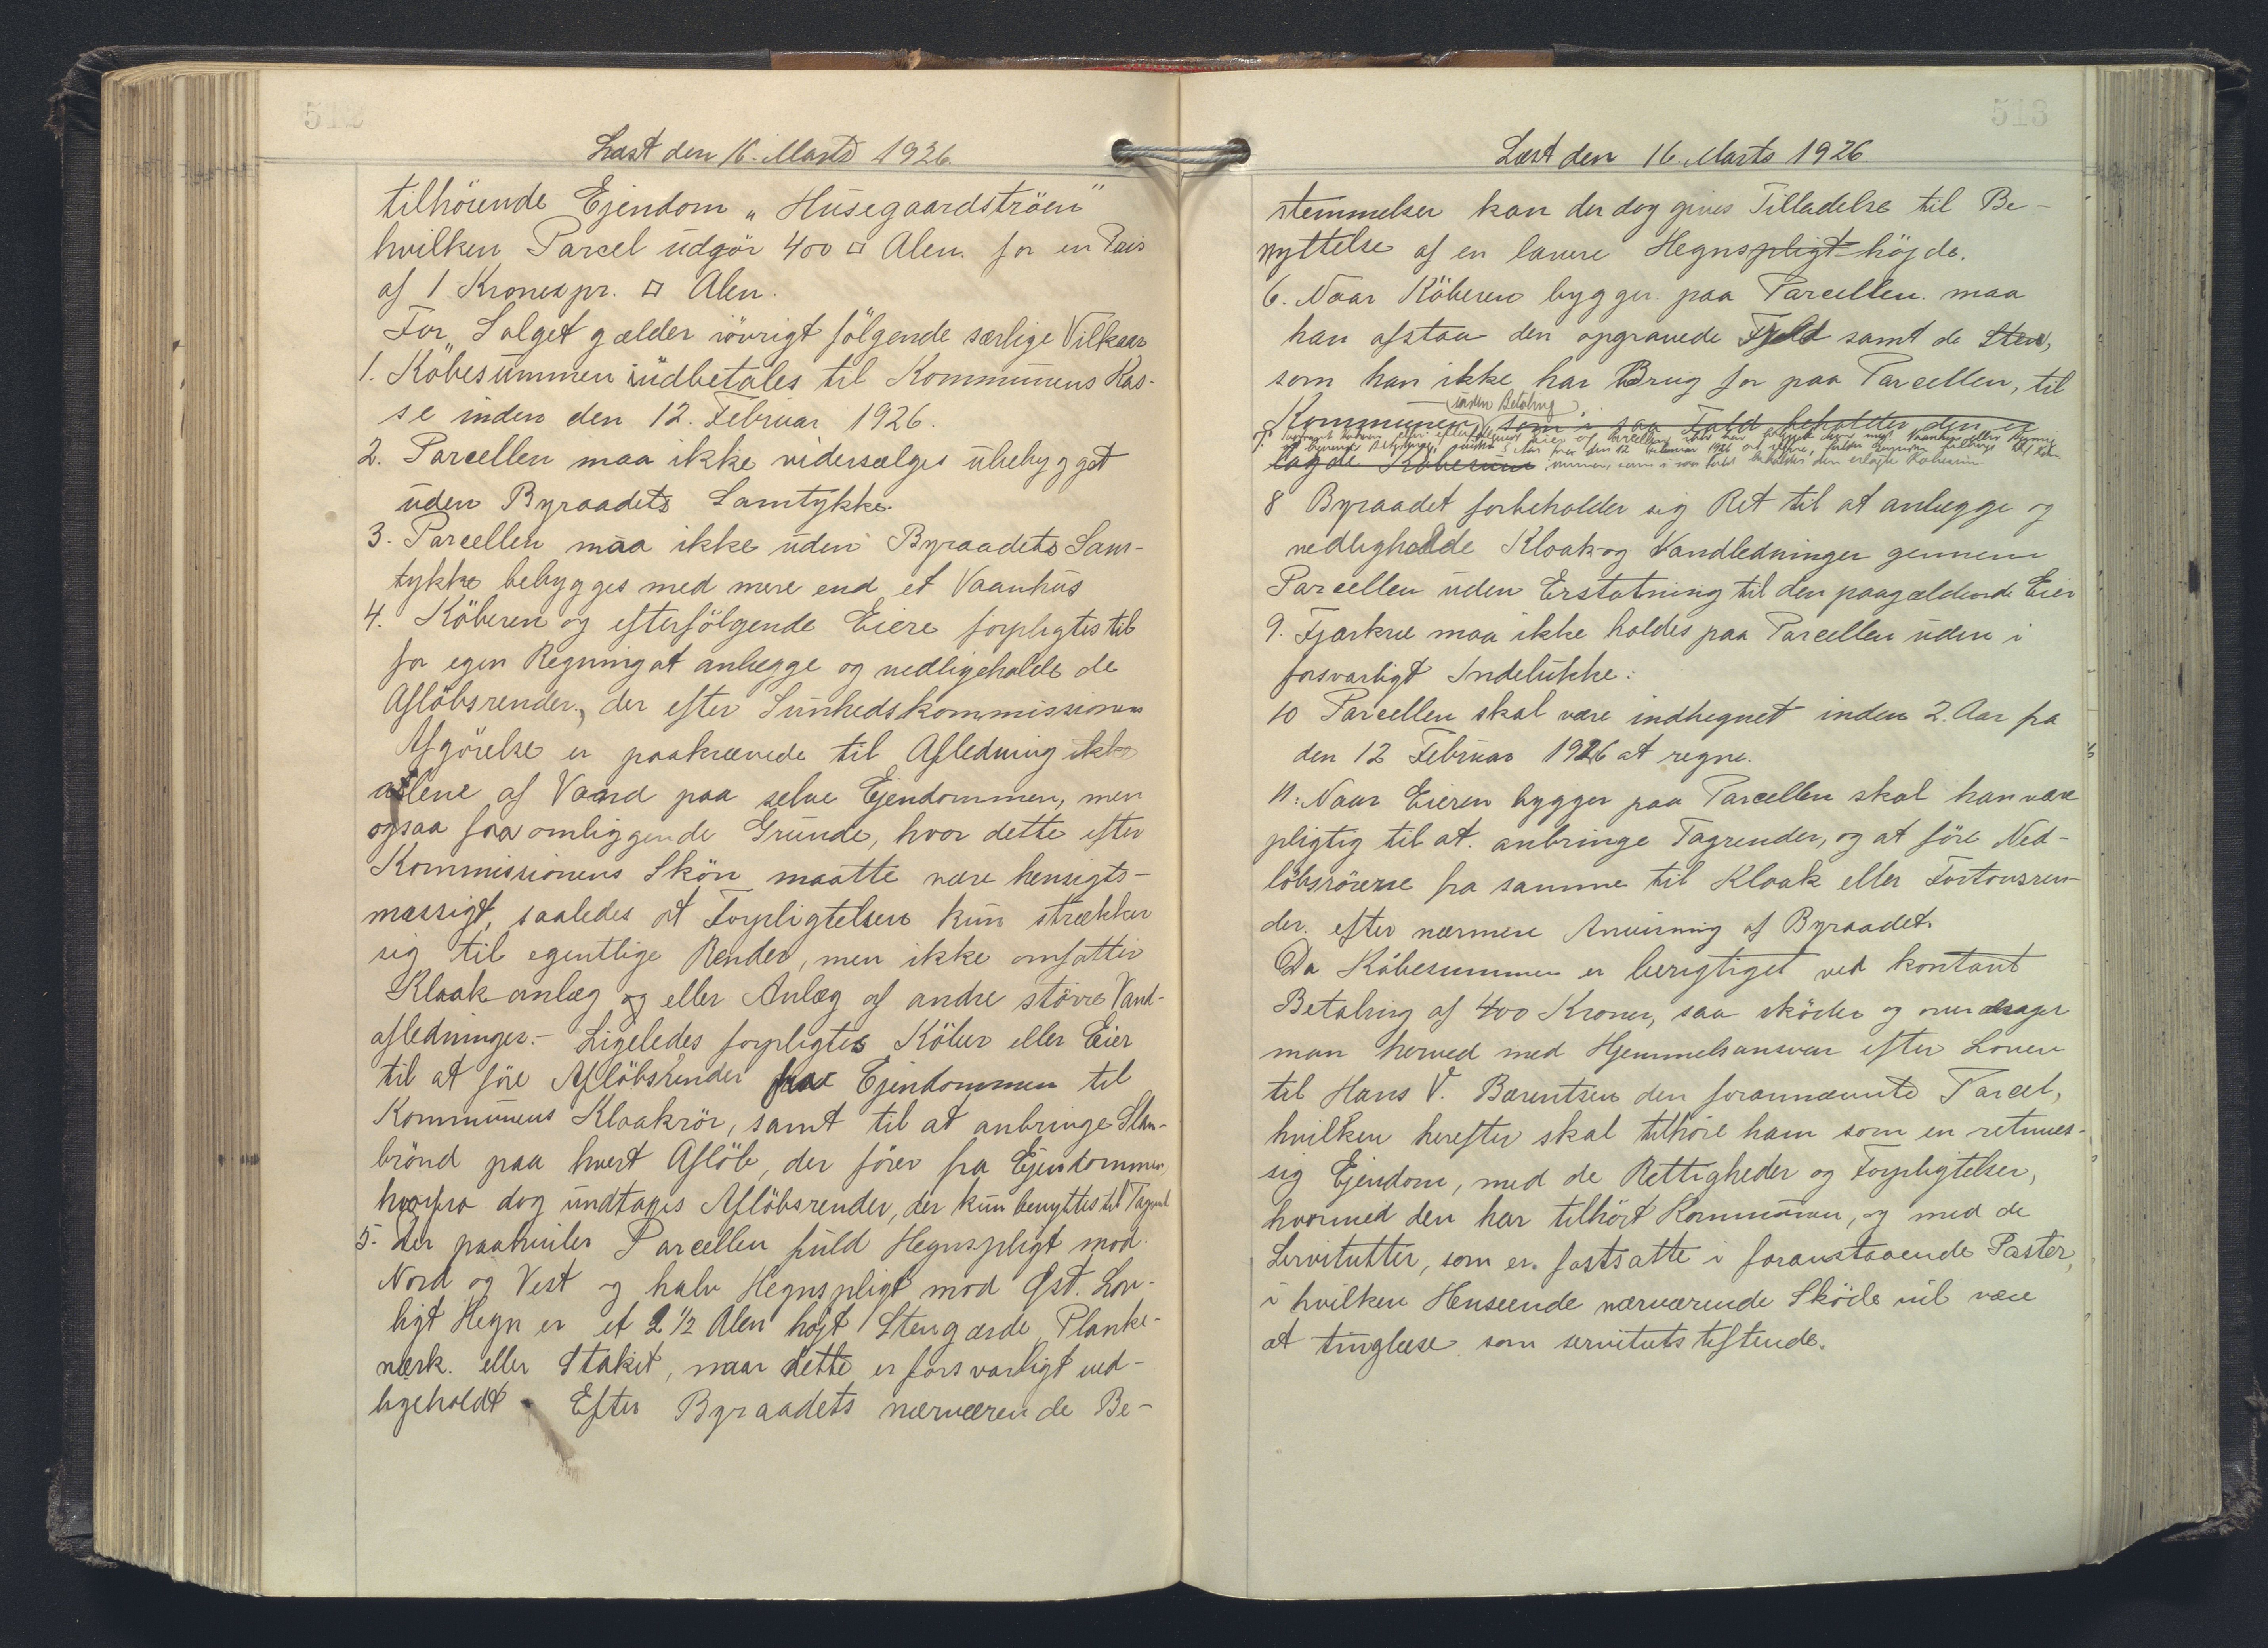 512
Læst den 16. Marts 1926.
tilhörende Ejendom „Husegaardströen"
hvilken Parcel udgör 400 □ Alen. for en Pris
af 1 Krone pr. □ Alen.
For Salget gælder iövrigt fölgende særlige Vilkaar
1. Köbesummen indbetales til Kommunens Kas-
se inden den 12. Februar 1926.
2. Parcellen maa ikke videresælges ubebygget
uden Byraadets Samtykke.
3. Parcellen maa ikke uden Byraadets Sam-
tykke bebygges med mere end et Vaanhus
4. Köberen og efterfölgende Eiere forpligtes til
for egen Regning at anlægge og vedligeholde de
Aflöbsrender, der efter Sunhedskommissionens
Afgörelse er paakrævede til Afledning ikke
alene af Vand paa selve Ejendommen, men
ogsaa fra omliggende Grunde, hvor dette efter
Kommissionens Skön maatte være hensigts-
mæssigt, saaledes at Forpligtelsen kun strækker
sig til egentlige Render, men ikke omfatter
Kloak anlæg og eller Anlæg af andre större Vand-
afledninger. - Ligeledes forpligtes Köber eller Eier
til at före Aflöbsrender fra Ejendommen til
Kommunens Kloakrör, samt til at anbringe Slam-
brönd paa hvert Aflöb, der förer fra Ejendommen,
hvorfra dog undtages Aflöbsrender, der kun benyttes til Tagvand
5. Der paahviler Parcellen fuld Hegnspligt mod
Nord og Vest og halv Hegnspligt mod Öst. Lov-
ligt Hegn er et 2 1/2 Alen höjt Stengærde, Planke-
værk. eller Stakit, naar dette er forsvarligt ved-
ligeholdt. Efter Byraadets nærværende Be-
513
Læst den 16. Marts 1926
stemmelser kan der dog gives Tilladelse til Be-
nyttelse af en lavere Hegnspligt höjde.
6. Naar Köberen bygger paa Parcellen maa
han afstaa den opgravede Fyld samt de Sten,
som han ikke har Brug for paa Parcellen, til
uden Betaling
Kommunen, som i saa Fald beholder den er
7. saafremt Köberen eller efterfölgende Eier af Parcellen ikke har bebygget denne med Vaanhus eller
inden 5 Aar fra den 12 Februar 1926 at regne, falder Grunden tilbage til Kom-
lagde Köbesum munen, som i saa Fald beholder den erlagte Köbesum
8 Byraadet forbeholder sig Ret til at anlægge og
vedligholde Kloak og Vandledninger gennem
Parcellen uden Erstatning til den paagældende Eier
9. Fjærkræ maa ikke holdes paa Parcellen uden i
forsvarligt Indelukke:
10 Parcellen skal være indhegnet inden 2. Aar fra
den 12 Februar 1926 at regne.
11: Naar Eieren bygger paa Parcellen skal han være
pligtig til at. anbringe Tagrender, og at före Ned-
löbsrörene fra samme til Kloak eller Fortovsren-
der. efter nærmere Anvisning af Byraadet.
Da Köbesummen er berigtiget ved kontant
Betaling af 400 Kroner, saa sköder og overdrager
man herved med Hjemmelsansvar efter Loven
til Hans V. Barentsen den forannævnte Parcel,
hvilken herefter skal tilhöre ham som en retmæs-
sig Ejendom, med de Rettigheder og Forpligtelser,
hvormed den har tilhört Kommunen, og med de
Servitutter, som er fastsatte i foranstaaende Poster,
i hvilken Henseende nærværende Sköde vil være
at tinglæse som servitutstiftende.